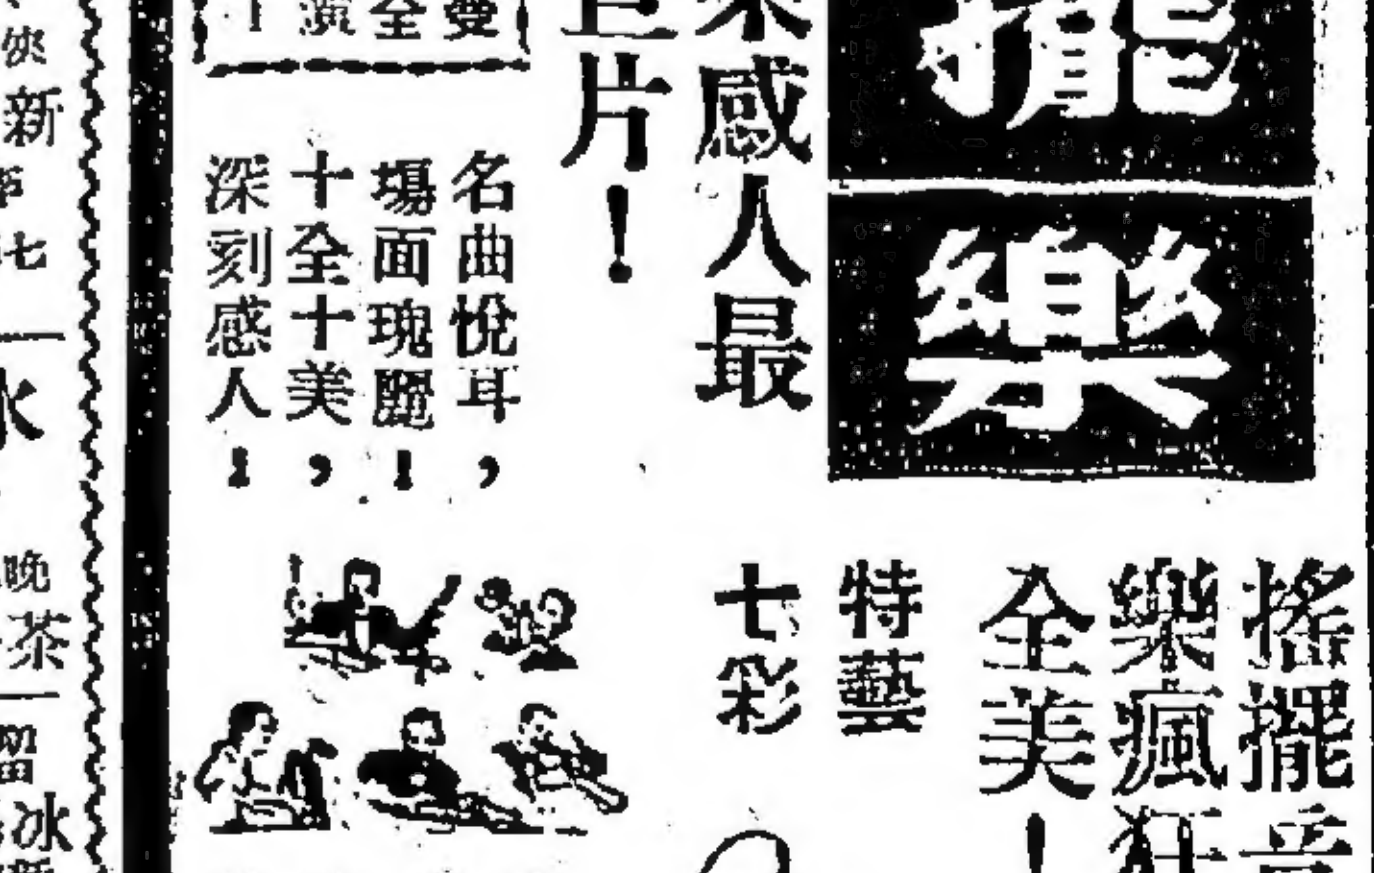 擺樂
搖擺音
樂瘋狂
全美！
特藝
七彩
感人最
巨片！
名曲悅耳，
塲面瑰麗！
十全十美，
深刻感人！
新
七
晚
茶
冰